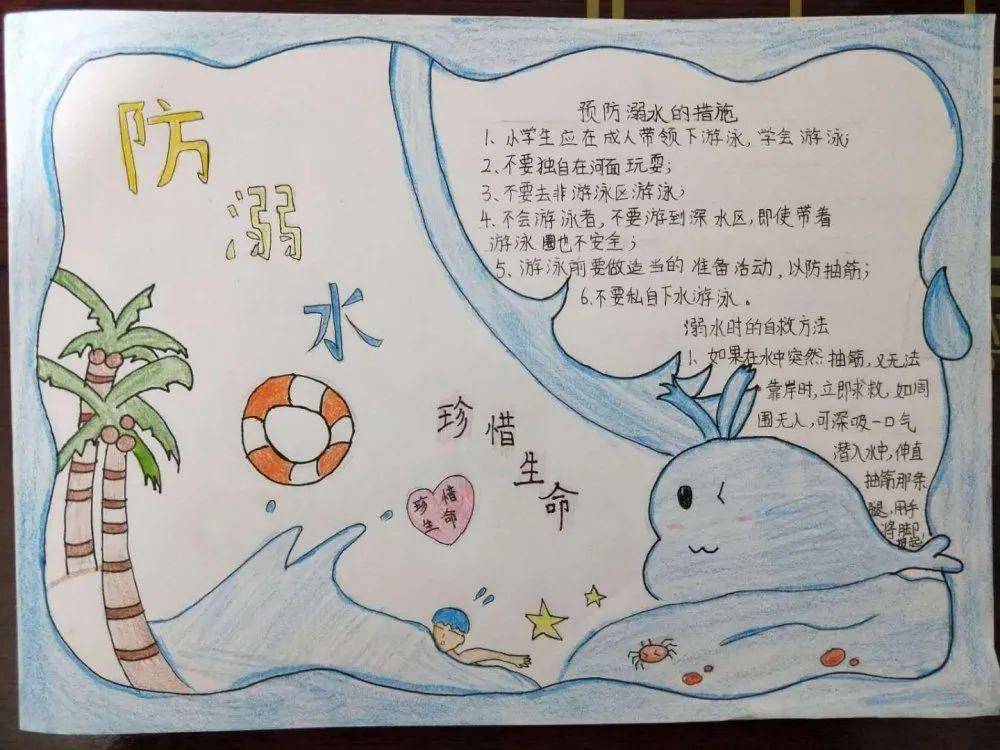 防
溺
水
珍惜
生命
珍惜
生命
预防溺水的措施
1、小学生应在成人带领下游泳,学会游泳;
2、不要独自在河面玩耍;
3、不要去非游泳区游泳;
4、不会游泳者,不要游到深水区,即使带着
游泳圈也不安全;
5、游泳前要做适当的准备活动,以防抽筋;
6、不要私自下水游泳。
溺水时的自救方法
1、如果在水中突然抽筋,又无法
靠岸时,立即求救,如周
围无人,可深吸一口气
潜入水中,伸直
抽筋那条
腿,用手
将脚